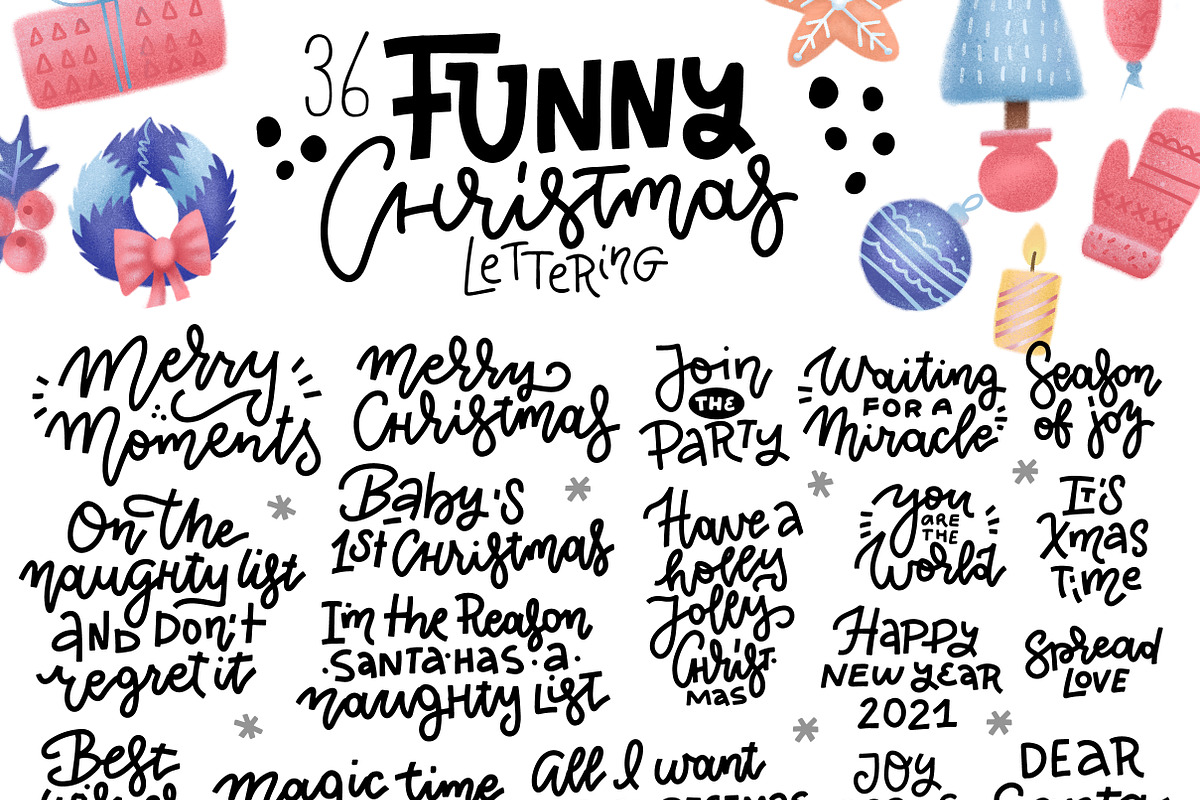 36 FUNNY
Christmas
LETTERING
Merry
Moments
Merry
Christmas
Join
THE
PARTY
Waiting
FOR A
Miracle
Season
of joy
On the
naughty list
AND DON't
regret it
Baby's
1st Christmas
I'm the Reason
SANTA HAS a
naughty List
Have a
holly
Jolly
Christ
mas
you
ARE
THE
World
IT'S
Xmas
Time
HAPPY
NEW YEAR
2021
Spread
LOVE
Best
magic time
All I want
JOY
DEAR